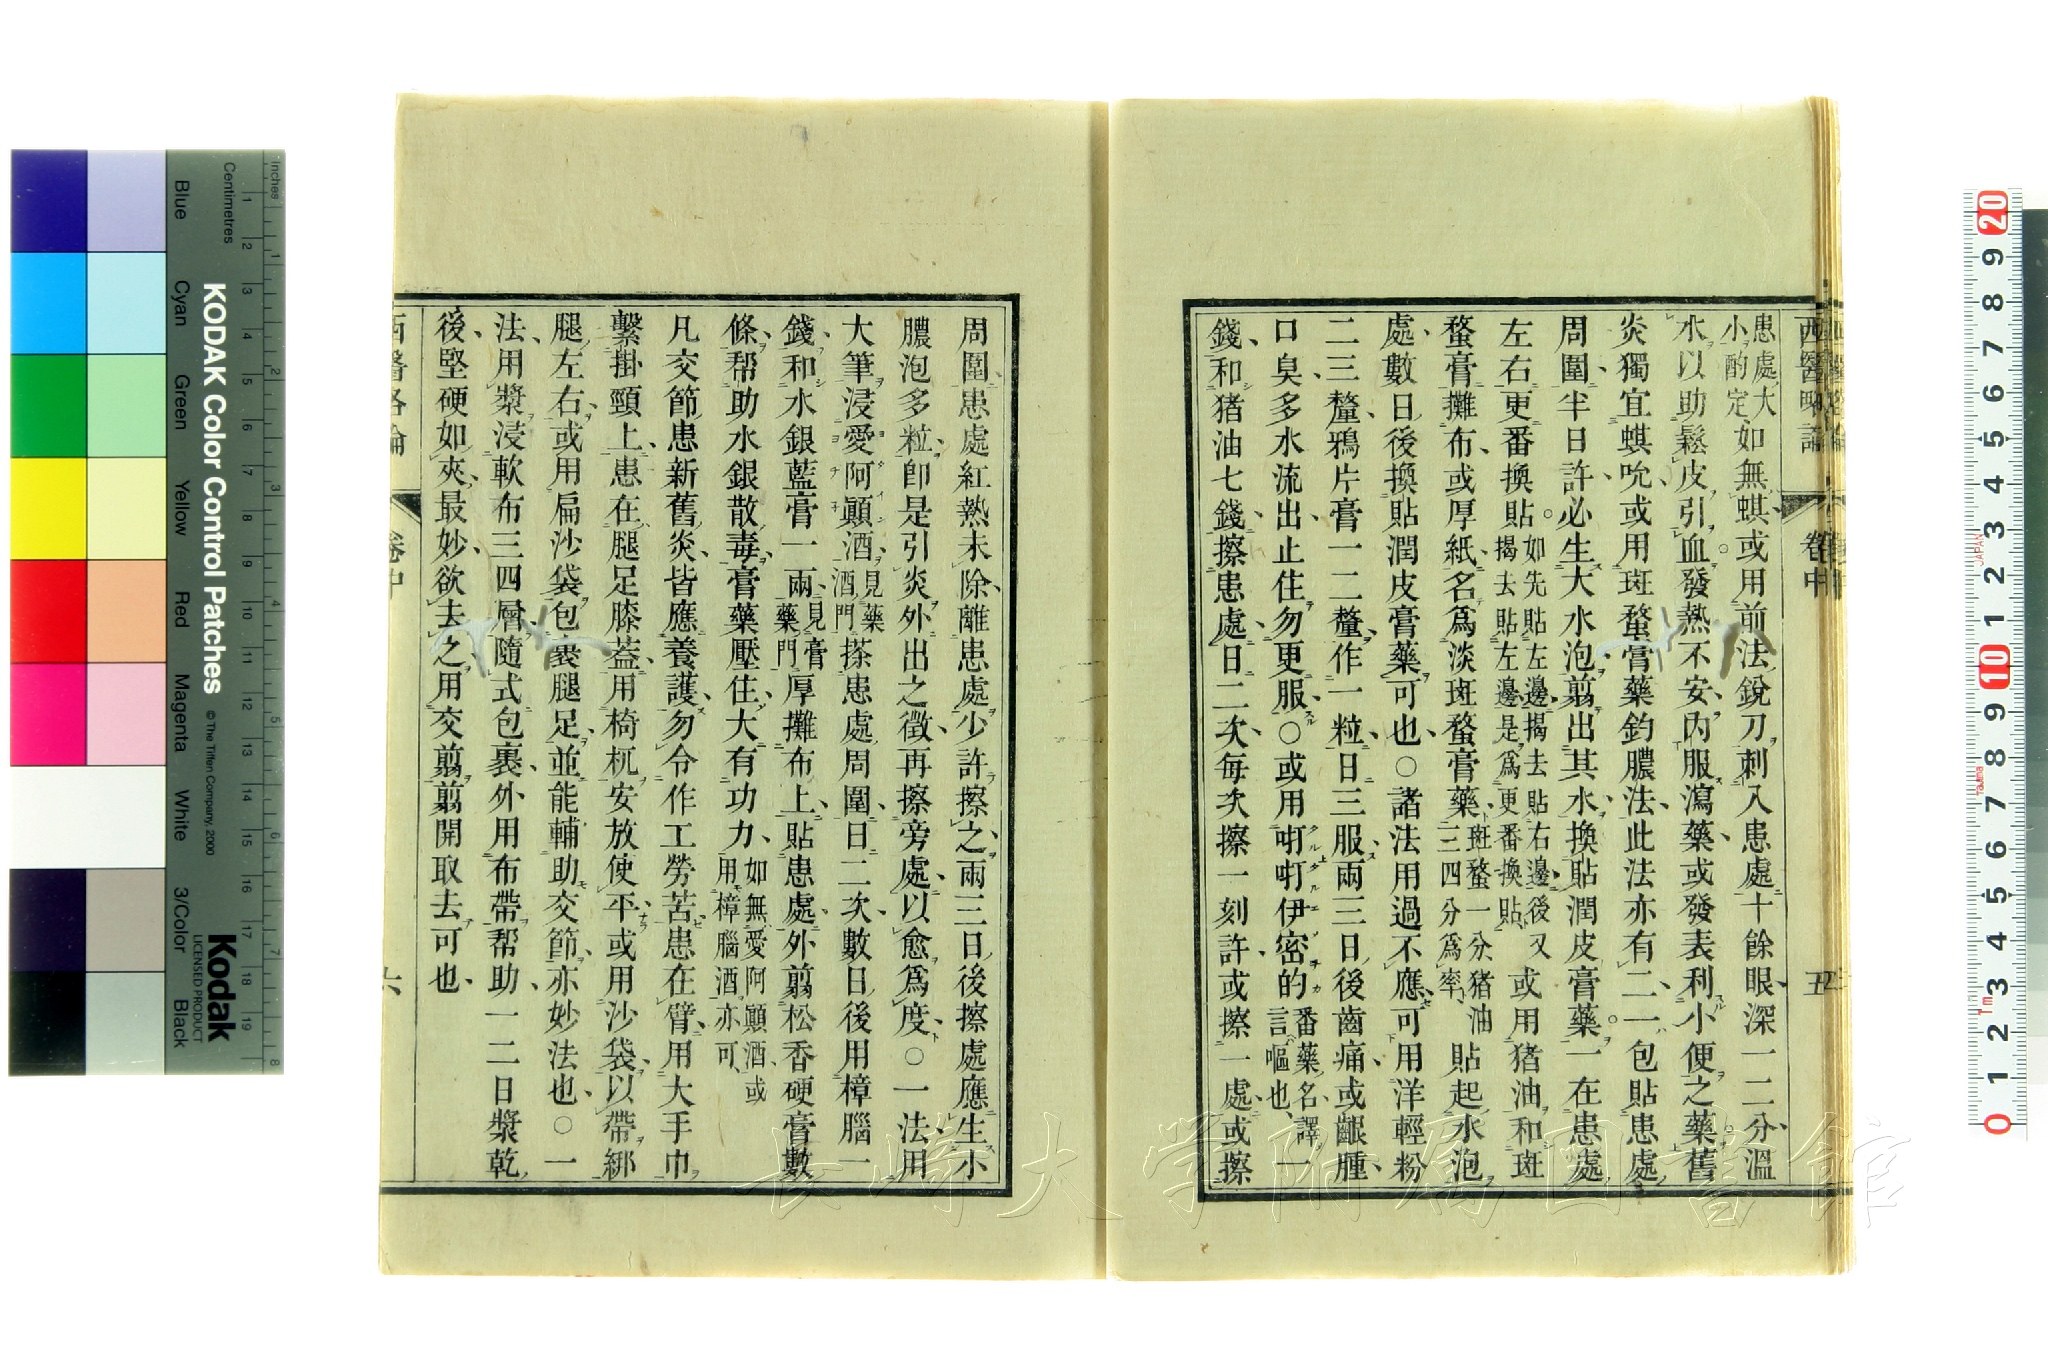 西醫略論 卷中 五
患處大小酌定、如無蜞、或用前法、銳刀刺入患處十餘眼、深一二分、溫
水以助鬆皮引血、發熱不安、內服瀉藥、或發表利小便之藥。舊
炎獨宜蜞吮、或用斑蝥膏藥釣膿法、此法亦有二、一包貼患處
周圍半日許、必生大水泡、剪出其水、換貼潤皮膏藥。一在患處
左右更番換貼。如先貼左邊、揭去貼右邊、後又揭去貼左邊、是爲更番換貼、或用猪油和斑
蝥膏攤布、或厚紙、名爲淡斑蝥膏藥、斑蝥一分、猪油三四分爲率、貼起水泡
處、數日後、換貼潤皮膏藥可也、○諸法用過不應、可用洋輕粉
二三釐、鴉片膏一二釐、作一粒、日三服、兩三日後、齒痛、或齦腫、
口臭、多水流出、止住勿更服、○或用
伊密的番藥名、譯言嘔也、一
錢、和猪油七錢、擦患處、日二次、每次擦一刻許、或擦一處、或擦
周圍、患處紅熱未除、離患處少許擦之、兩三日後、擦處應生小
膿泡多粒、卽是引炎外出之徵、再擦旁處、以愈爲度、○一法、用
大筆浸愛阿顚酒、見藥酒門、搽患處周圍、日二次、數日後、用樟腦一
錢、和水銀藍膏一兩、見膏藥門、厚攤布上、貼患處、外剪松香硬膏數
條、帮助水銀散毒、膏藥壓住、大有功力、如無愛阿顚酒、或用樟腦酒亦可、
凡交節患新舊炎、皆應養護、勿令作工勞苦、患在臂、用大手巾
繫掛頸上、患在腿足膝蓋、用椅杌安放使平、或用沙袋、以帶綁
腿左右、或用扁沙袋包裹腿足、並能輔助交節、亦妙法也、○一
法、用漿浸軟布三四層、隨式包裹、外用布帶帮助、一二日漿乾
後、堅硬如夾、最妙、欲去之、用交剪剪開取去可也、
西醫略論 卷中 六
長崎大学附属図書館
KODAK Color Control Patches
© The Tiffen Company, 2000
Kodak
LICENSED PRODUCT
Inches
Centimetres
Blue
Cyan
Green
Yellow
Red
Magenta
White
3/Color
Black
1 2 3 4 5 6 7 8 9 10 11 12 13 14 15 16 17 18 19
1 2 3 4 5 6 7 8
20 9 8 7 6 5 4 3 2 1 10 9 8 7 6 5 4 3 2 1 0
JAPAN
1m